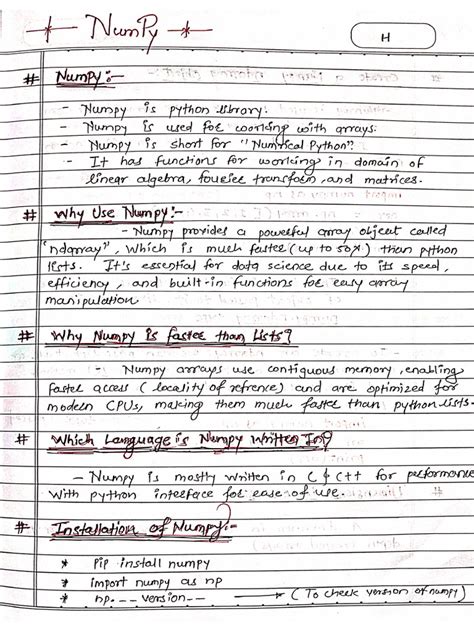 NumPy
H
# Numpy :-
- Numpy is python library.
- Numpy is used for working with arrays.
- Numpy is short for "Numrical Python".
- It has functions for working in domain of
linear algebra, fourier transform, and matrices.
# Why Use Numpy:-
- Numpy provides a powerful array object called
"ndarray", which is much faster (up to 50x) than python
lists. It's essential for data science due to its speed,
efficiency, and built-in functions for easy array
manipulation
# Why Numpy is faster than Lists?
- Numpy arrays use contiguous memory, enabling
faster access (locality of refrence) and are optimized for
modern CPUs, making them much faster than python lists.
# Which Language is Numpy Written In?
- Numpy is mostly written in C & C++ for performance
With python interface for ease of use.
# Installation of Numpy:-
* Pip install numpy
* import numpy as np
* np.__version__ → (To check version of numpy)